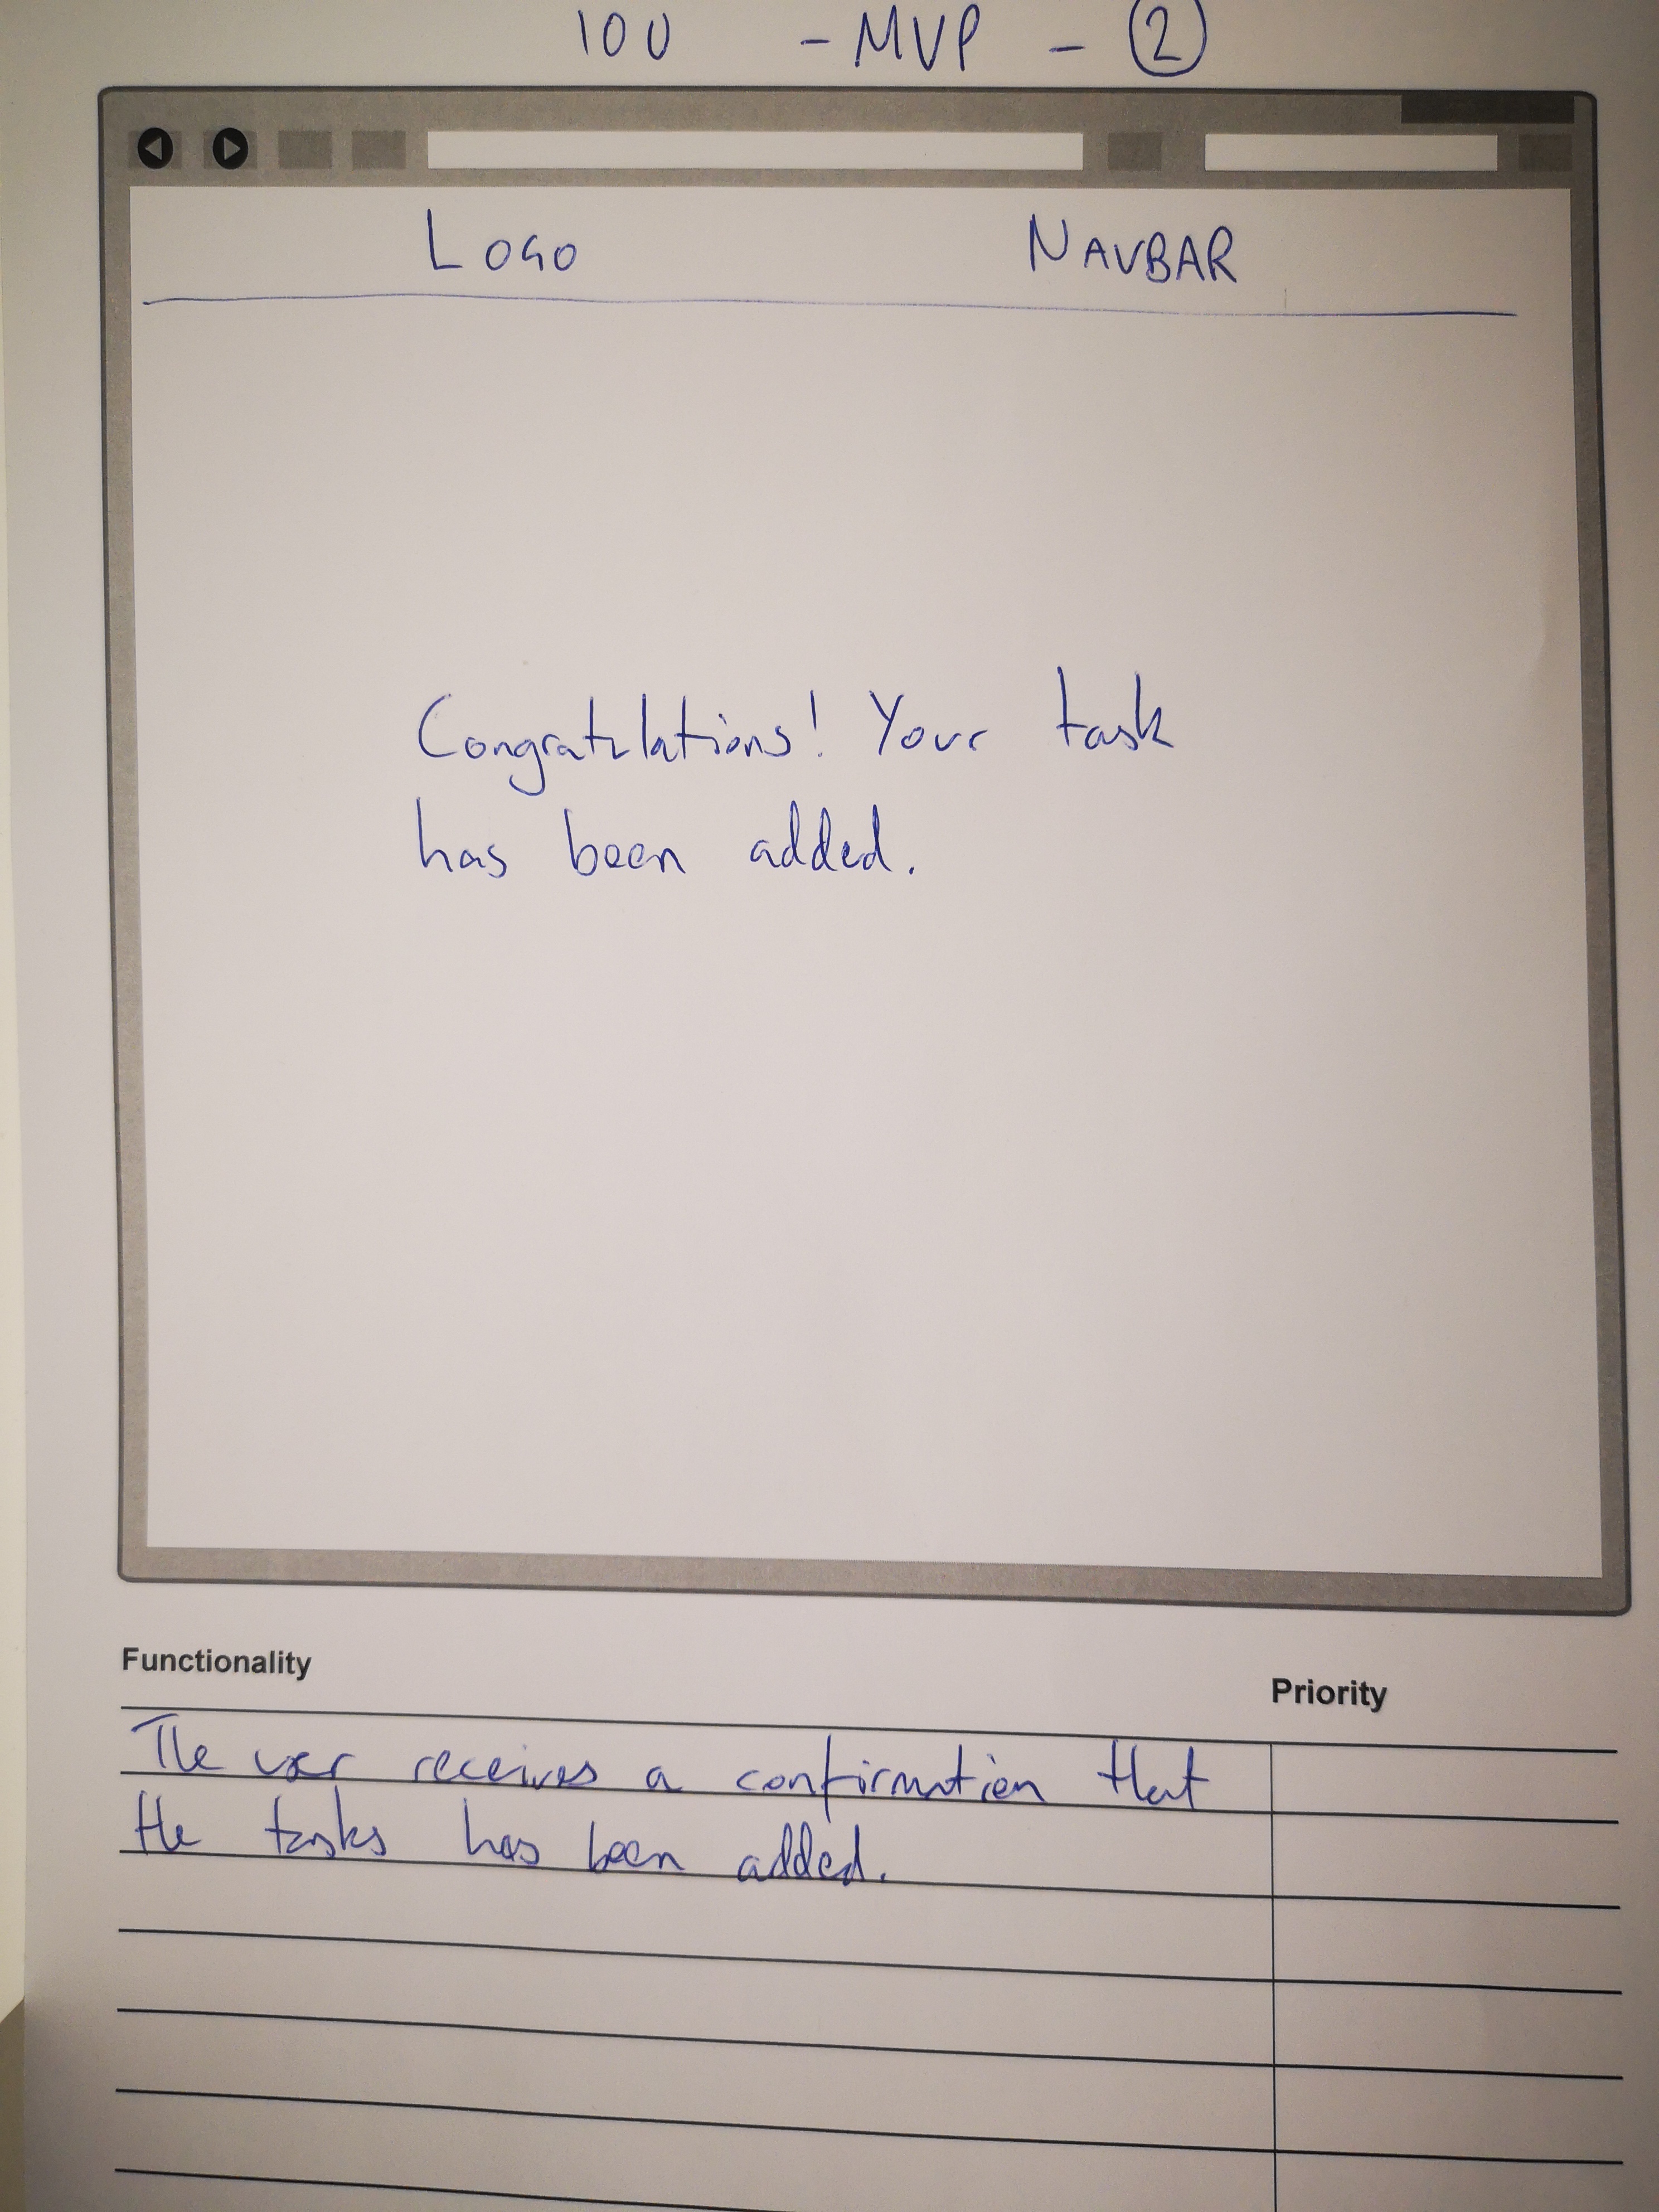 IOU - MVP - 2
LOGO NAVBAR
Congratulations! Your task
has been added.
Functionality Priority
The user receives a confirmation that
the tasks has been added.